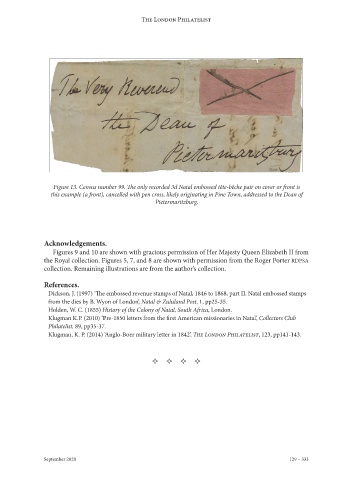 The London Philatelist
The Very Reverend
the Dean of
Pietermaritzburg
Figure 13. Census number 99. The only recorded 3d Natal embossed tête-bêche pair on cover or front is
this example (a front), cancelled with pen cross, likely originating in Pine Town, addressed to the Dean of
Pietermaritzburg.
Acknowledgements.
Figures 9 and 10 are shown with gracious permission of Her Majesty Queen Elizabeth II from
the Royal collection. Figures 5, 7, and 8 are shown with permission from the Roger Porter RDPSA
collection. Remaining illustrations are from the author's collection.
References.
Dickson, J. (1997) 'The embossed revenue stamps of Natal, 1846 to 1868, part II. Natal embossed stamps
from the dies by B. Wyon of London', Natal & Zululand Post, 1, pp25-35.
Holden, W. C. (1855) History of the Colony of Natal, South Africa, London.
Klugman K.P. (2010) 'Pre-1850 letters from the first American missionaries in Natal', Collectors Club
Philatelist, 89, pp35-37.
Klugman, K. P. (2014) 'Anglo-Boer military letter in 1842'. The London Philatelist, 123, pp141-143.
September 2020
129 – 333